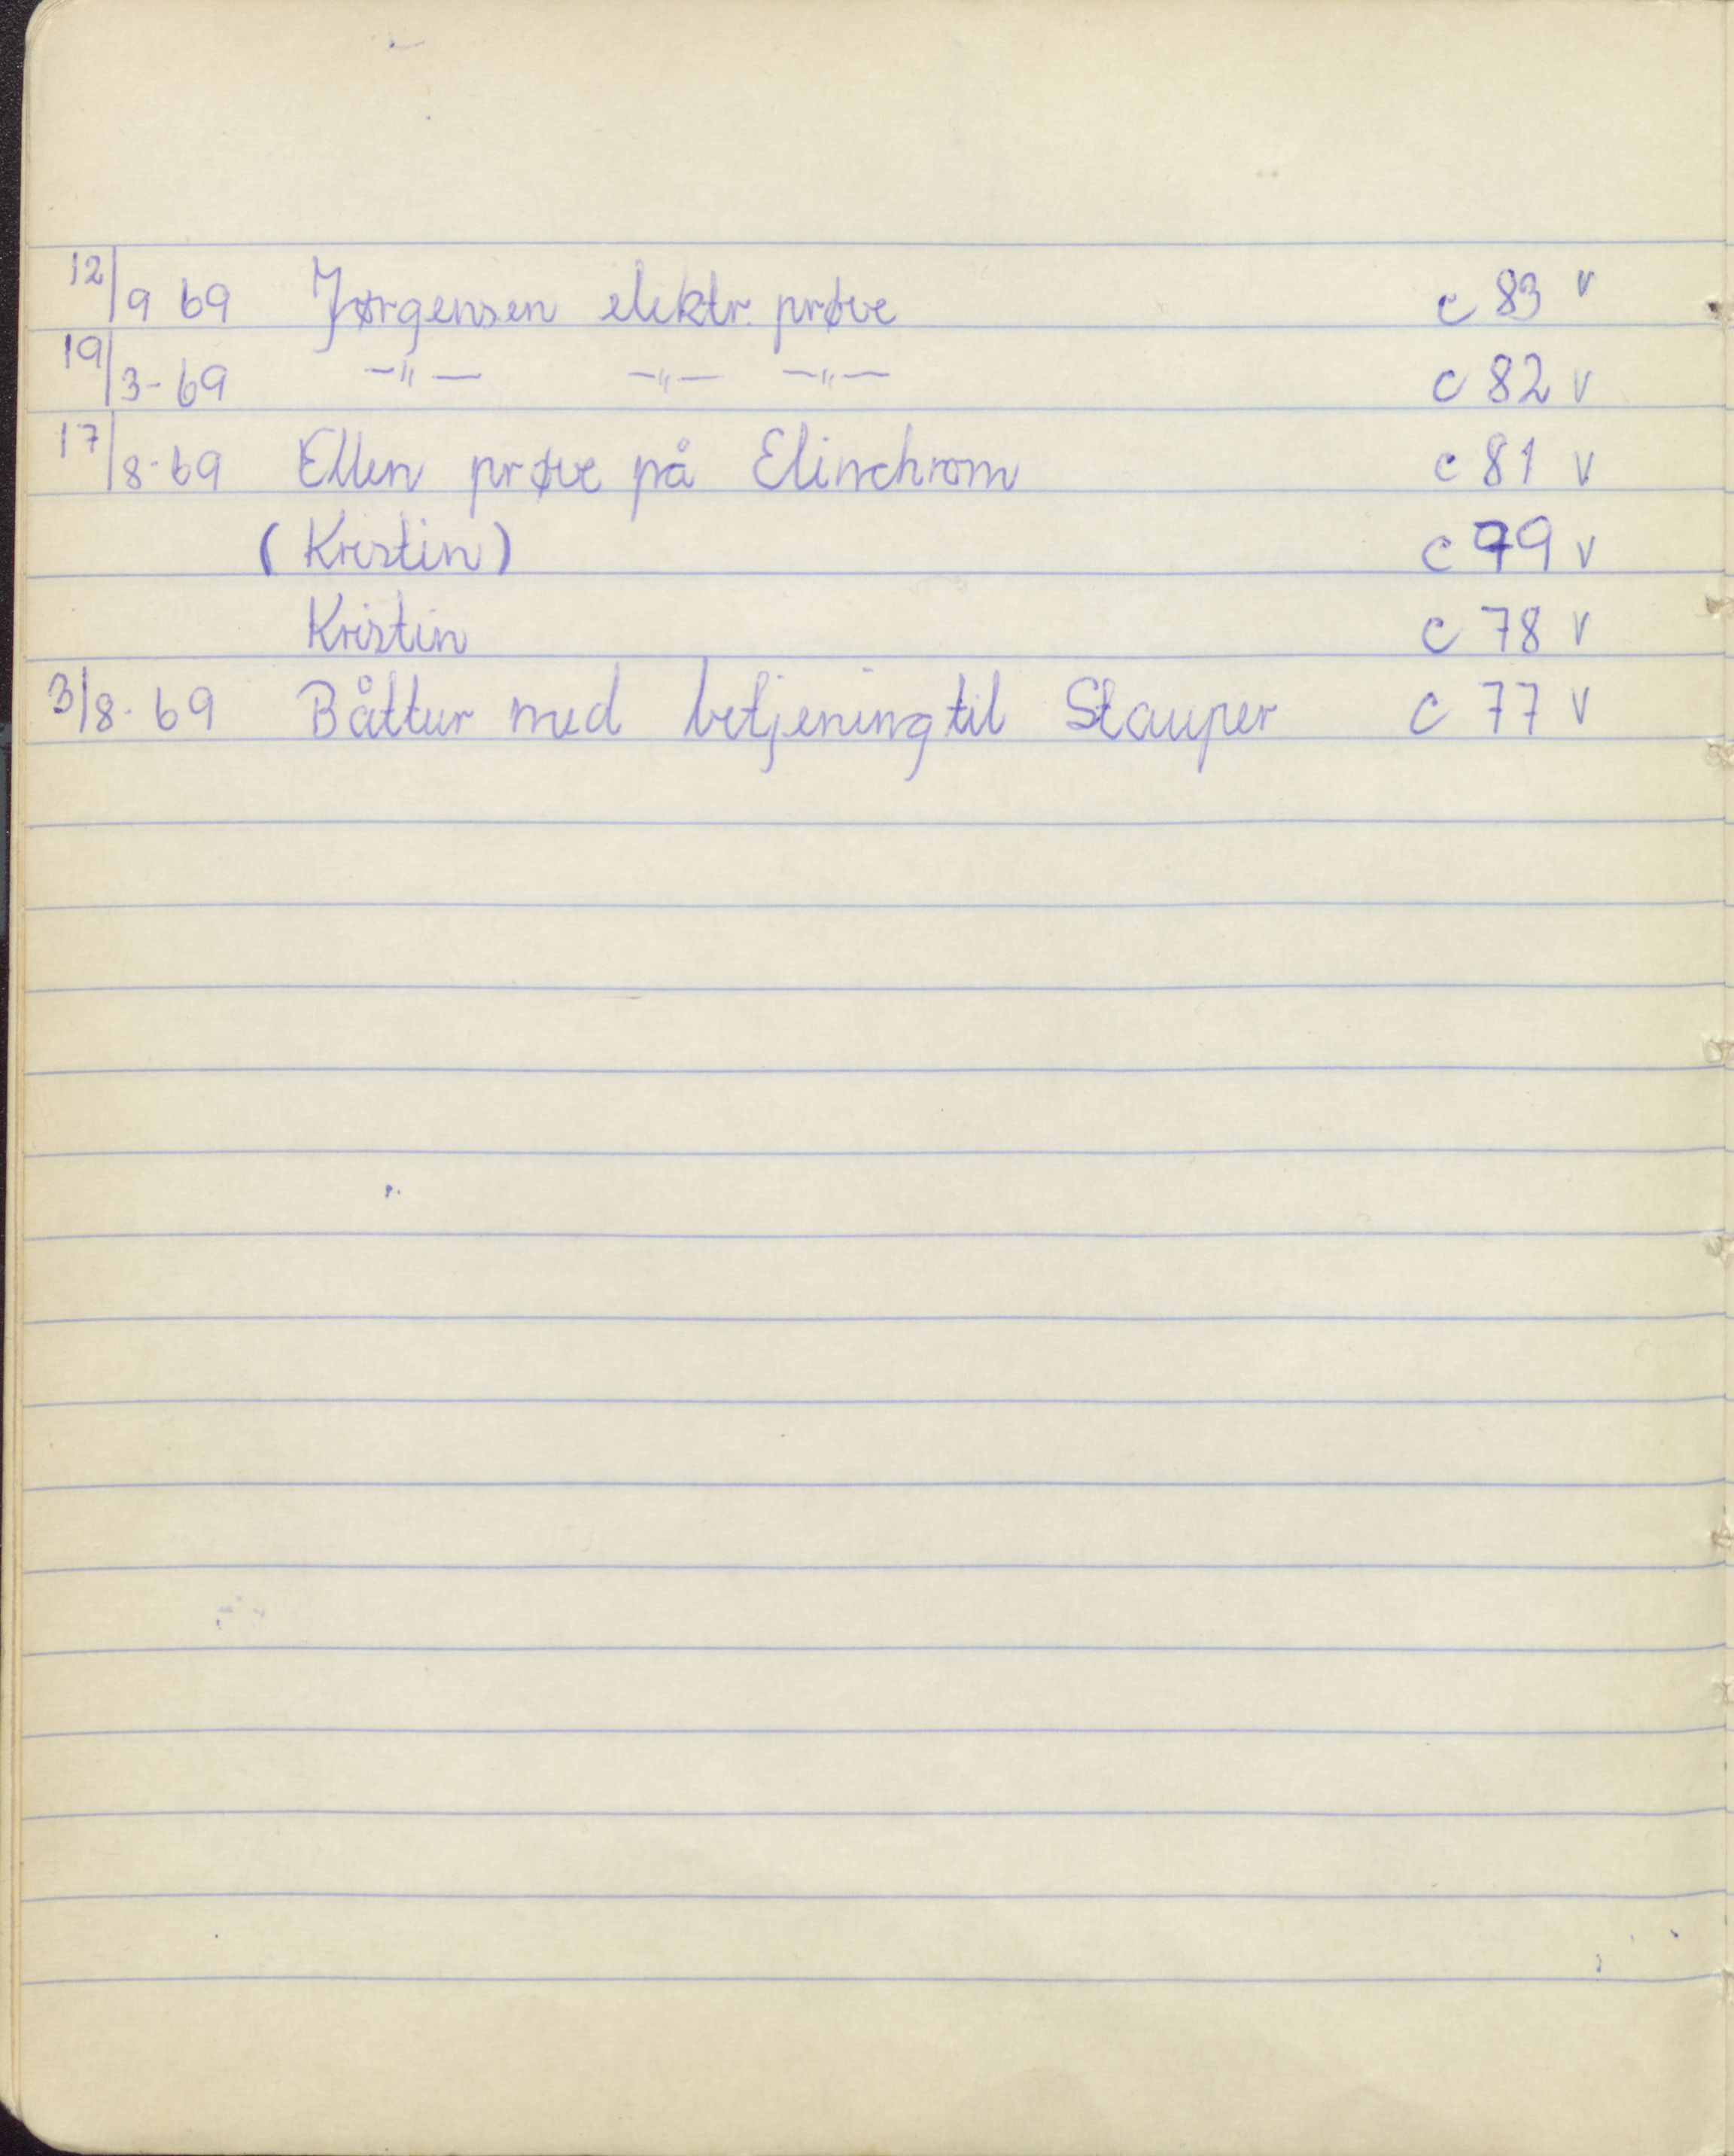 12/9 69 Jørgensen elektr. prøve c 83 v
19/3-69 -"- -"- -"- c 82 v
17/8-69 Ellen prøve på Elinchrom c 81 v
(Kristin) c 79 v
Kristin c 78 v
3/8-69 Båttur med betjening til Stauper c 77 v